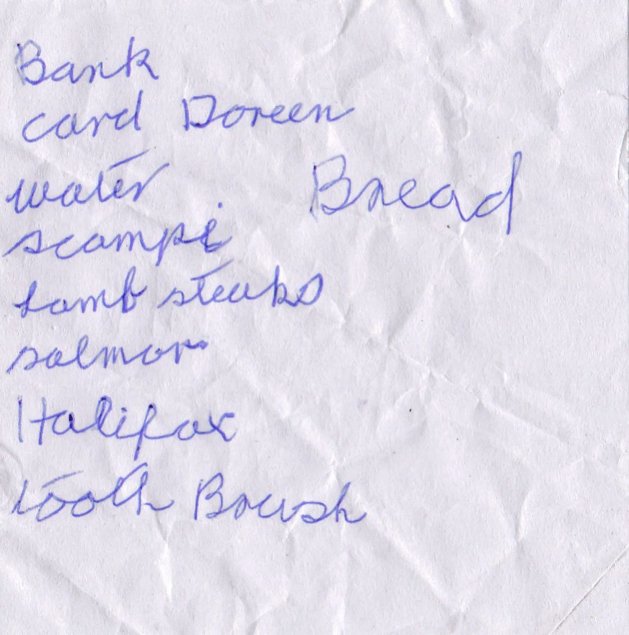 Bank
card Doreen
water
Bread
scampi
Lamb steaks
salmon
Halifax
tooth Brush